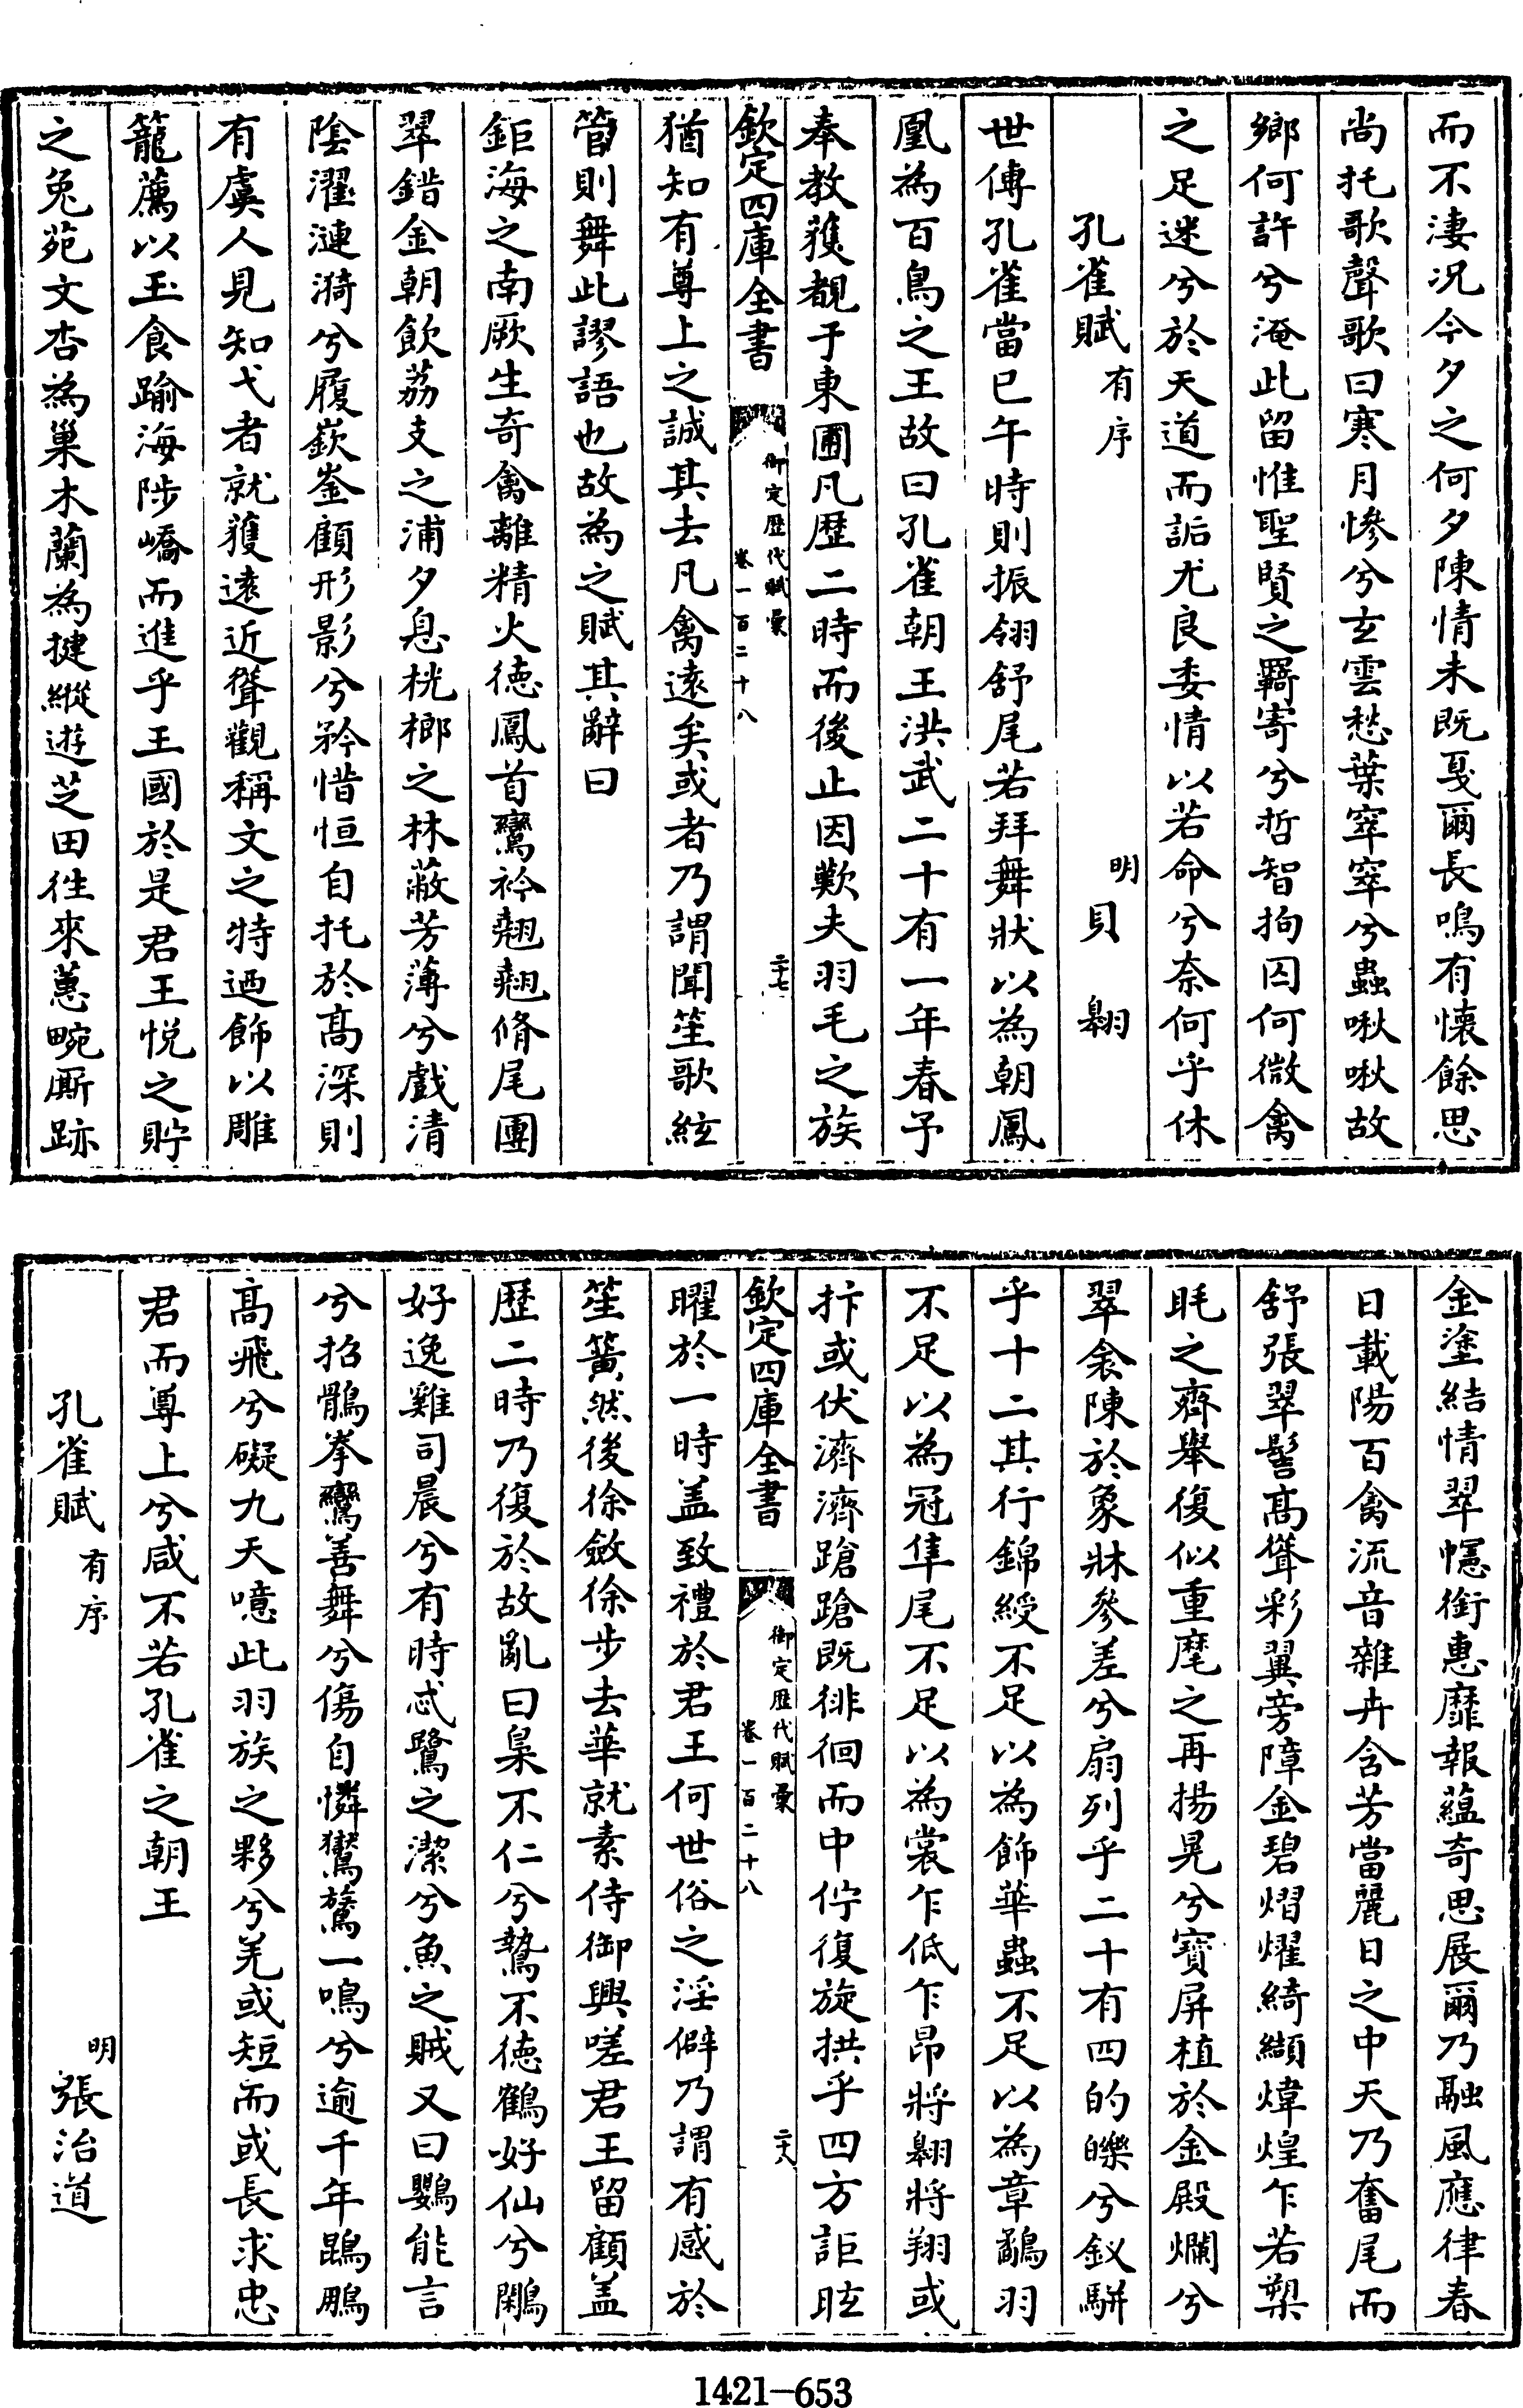 而不淒况今夕之何夕陳情未既戛爾長鳴有懷餘思
尚托歌聲歌曰寒月慘兮玄雲愁葉窣窣兮蟲啾啾故
鄉何許兮淹此留惟聖賢之羇寄兮哲智拘囚何微禽
之足迷兮於天道而詬尤良委情以若命兮奈何乎休
孔雀賦有序 明貝翺
世傳孔雀當已午時則振翎舒尾若拜舞狀以為朝鳳
凰為百鳥之王故曰孔雀朝王洪武二十有一年春予
奉教獲覩于東圃凡歴二時而後止因歎夫羽毛之族
欽定四庫全書 御定歴代賦彙 卷一百二十八 二十七
猶知有尊上之誠其去凡禽遠矣或者乃謂聞笙歌絃
管則舞此謬語也故為之賦其辭曰
鉅海之南厥生奇禽離精火德鳳首鸞衿翹翹脩尾團
翠錯金朝飲荔支之浦夕息桄榔之林蔽芳薄兮戲清
陰濯漣漪兮履嶔崟顧形影兮矜惜恒自托於髙深則
有虞人見知弋者就獲逺近聳觀稱文之特迺飾以雕
籠薦以玉食踰海陟嶠而進乎王國於是君王悦之貯
之兔苑文杏為巢木蘭為揵縱逰芝田徃來蕙畹厮跡
金塗結情翠幰銜惠靡報藴竒思展爾乃融風應律春
日載陽百禽流音雜卉含芳當麗日之中天乃奮尾而
舒張翠髻髙聳彩翼旁障金碧熠燿綺纈煒煌乍若槊
毦之齊舉復似重麾之再揚晃兮寳屏植於金殿爛兮
翠衾陳於象牀參差兮扇列乎二十有四的皪兮釵駢
乎十二其行錦綬不足以為飾華蟲不足以為章鷸羽
不足以為冠隼尾不足以為裳乍低乍昂將翺將翔或
抃或伏濟濟蹌蹌既徘徊而中佇復旋拱乎四方詎眩
欽定四庫全書 御定歴代賦彙 卷一百二十八 二十八
曜於一時盖致禮於君王何世俗之淫僻乃謂有感於
笙簧然後徐斂徐步去華就素侍御興嗟君王留顧盖
歴二時乃復於故亂曰梟不仁兮鷙不徳鶴好仙兮鷴
好逸雞司晨兮有時忒鷺之潔兮魚之賊又曰鸚能言
兮招鶻拳鸞善舞兮傷自憐鸑鷟一鳴兮逾千年鵾鵬
髙飛兮礙九天噫此羽族之夥兮羌或短而或長求忠
君而尊上兮咸不若孔雀之朝王
孔雀賦有序 明張治道
1421-653